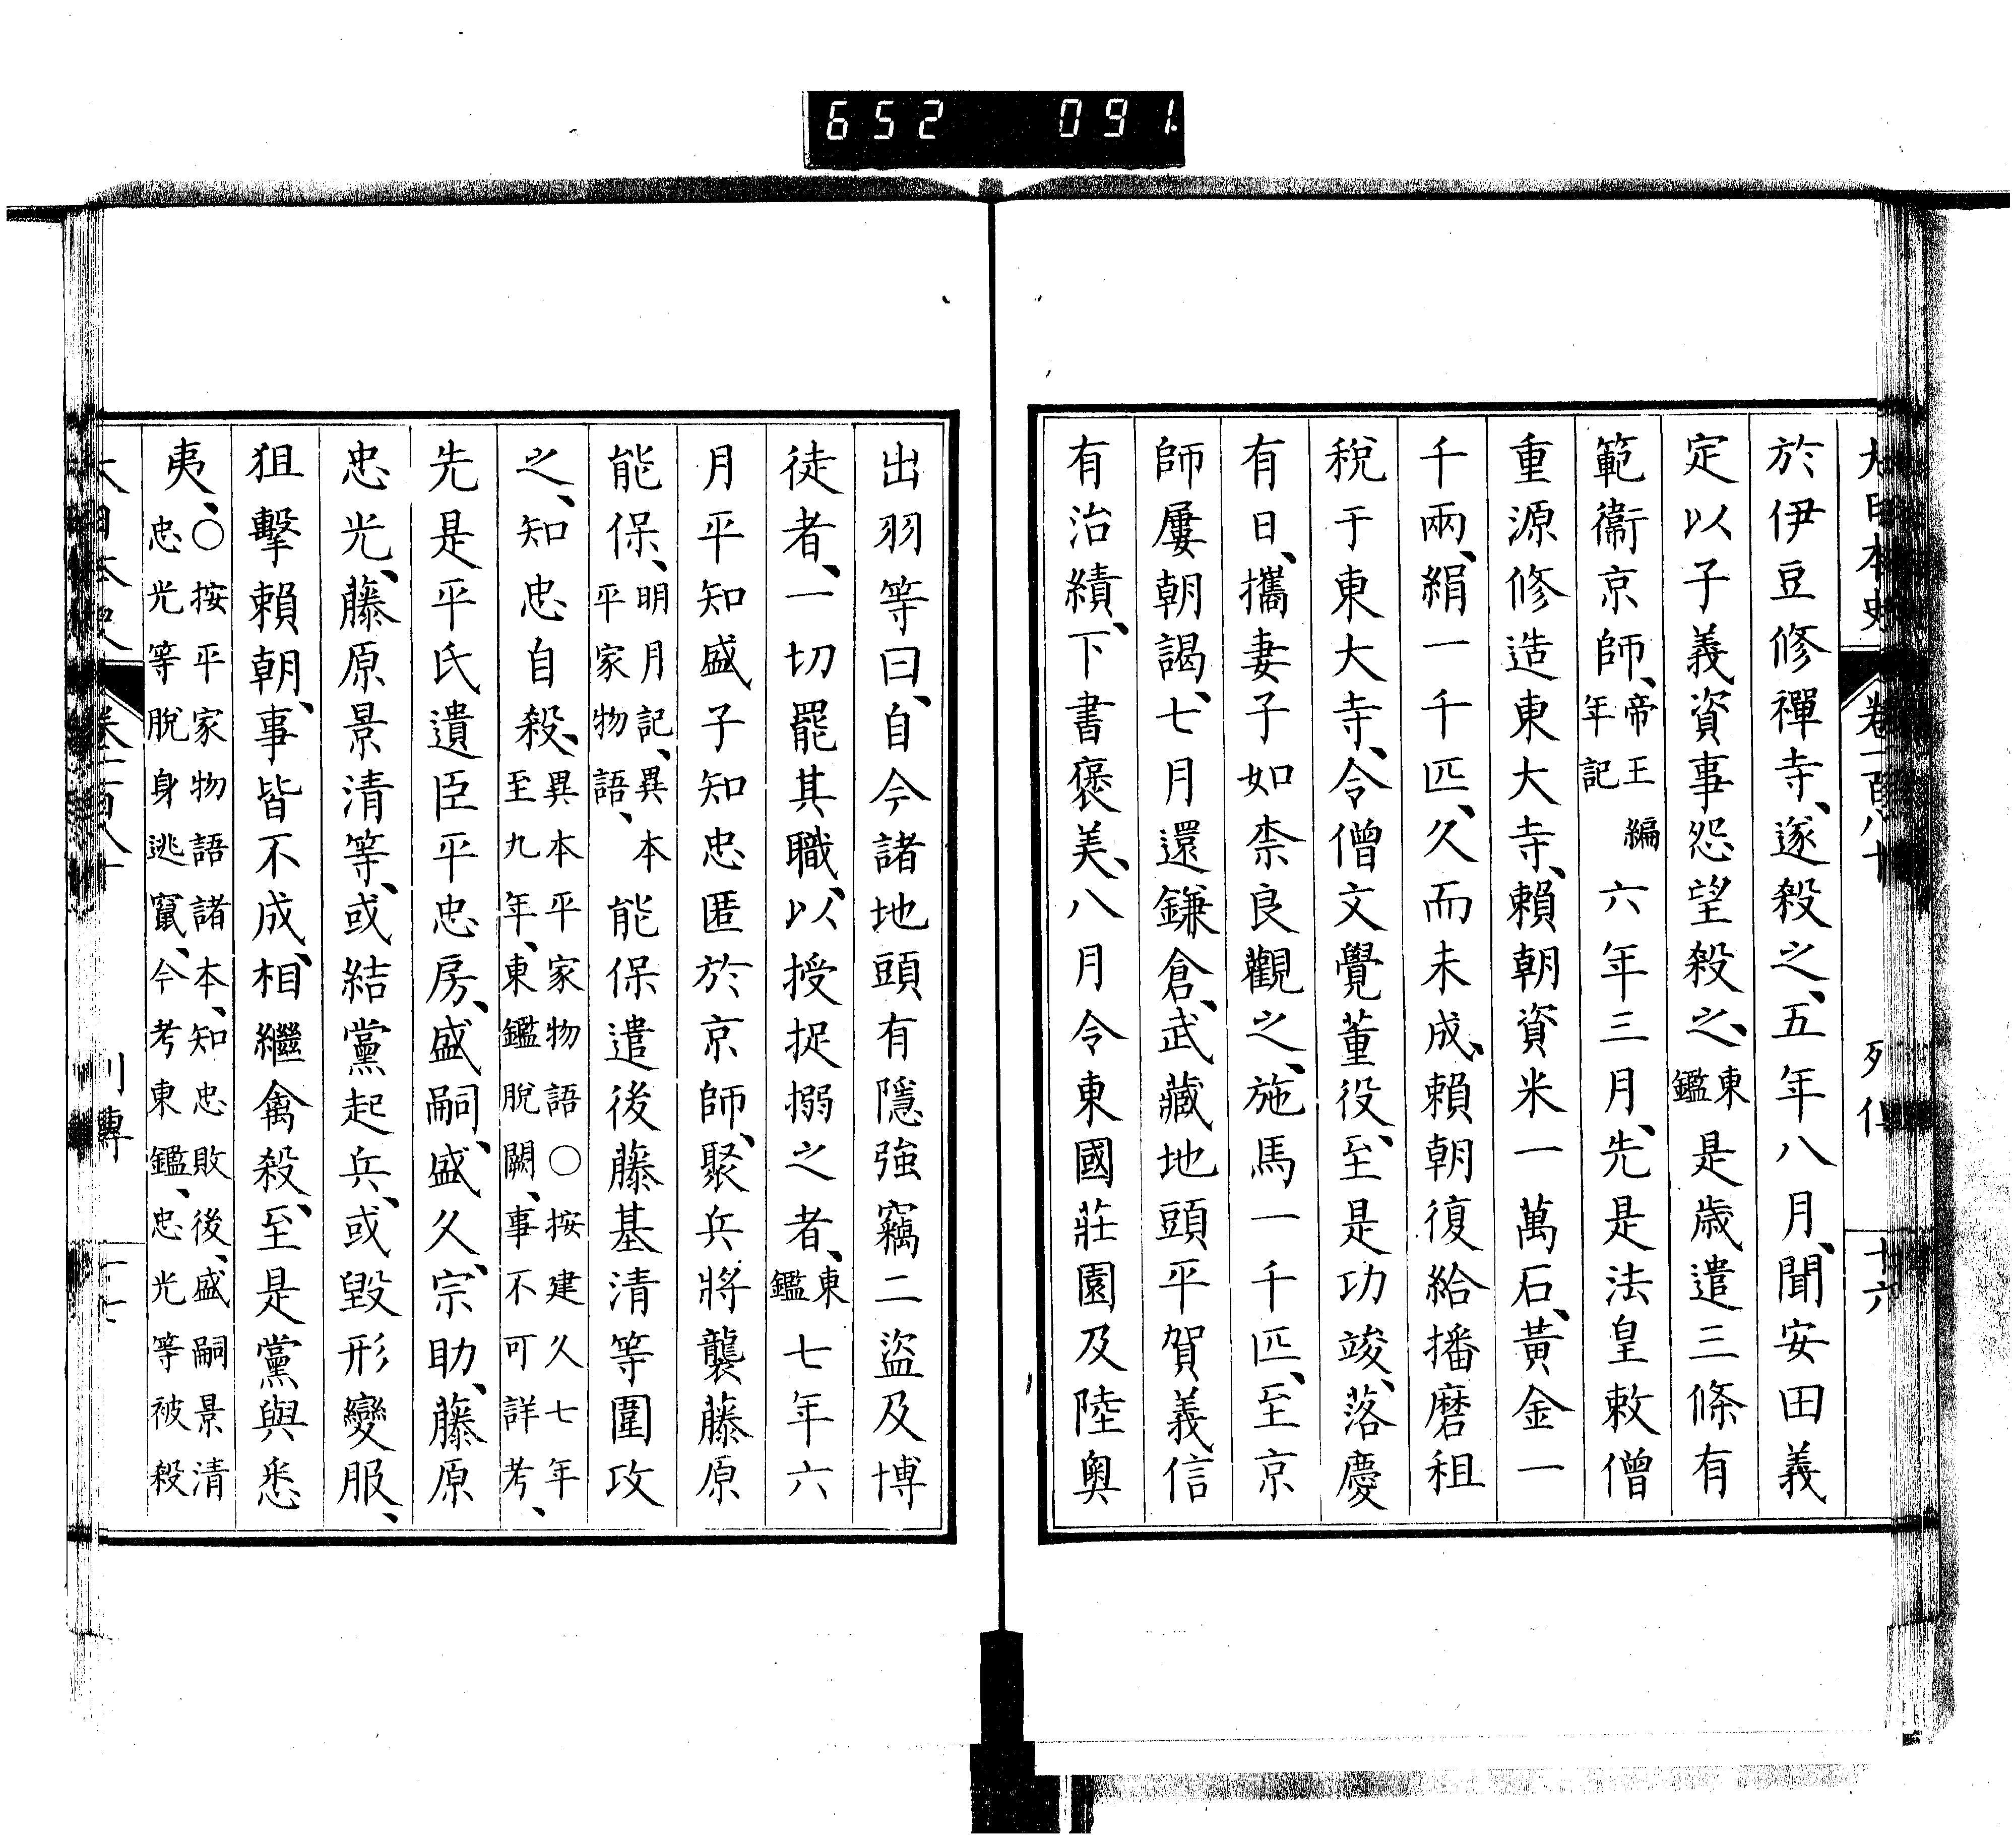 652 091.
大日本史 卷一百八十 列傳 十六
於伊豆修禪寺、遂殺之、五年八月、聞安田義
定以子義資事怨望殺之、東鑑是歲遣三條有
範衞京師、帝王編年記六年三月、先是法皇敕僧
重源修造東大寺、賴朝資米一萬石、黃金一
千兩、絹一千匹、久而未成、賴朝復給播磨租
稅于東大寺、令僧文覺董役、至是功竣、落慶
有日、攜妻子如柰良觀之、施馬一千匹、至京
師屢朝謁、七月還鎌倉、武藏地頭平賀義信
有治績、下書褒美、八月令東國莊園及陸奧
出羽等曰、自今諸地頭有隱強竊二盜及博
徒者、一切罷其職、以授捉搦之者、東鑑七年六
月平知盛子知忠匿於京師、聚兵將襲藤原
能保、明月記、異本平家物語、能保遣後藤基清等圍攻
之、知忠自殺、異本平家物語○按建久七年至九年、東鑑脫闕、事不可詳考、
先是平氏遺臣平忠房、盛嗣、盛久、宗助、藤原
忠光、藤原景清等、或結黨起兵、或毀形變服、
狙擊賴朝、事皆不成、相繼禽殺、至是黨與悉
夷、○按平家物語諸本、知忠敗後、盛嗣景清忠光等脫身逃竄、今考東鑑、忠光等被殺
大日本史 卷一百八十 列傳